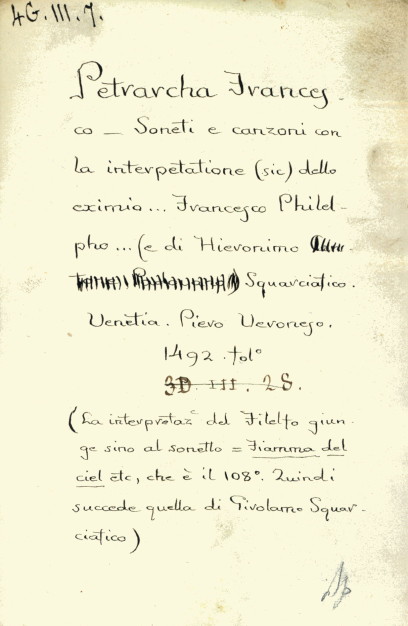 4G.III.7.
Petrarcha Frances-
co — Soneti e canzoni con
la interpetatione (sic) dello
eximio... Francesco Philel-
pho... (e di Hieronimo
Squarciafico.
Venetia. Piero Veronese.
1492. fol°
3D. III. 28.
(La interpretaz.e del Filelfo giun-
ge sino al sonetto = Fiamma del
ciel etc, che è il 108°. Quindi
succede quella di Girolamo Squar-
ciafico)